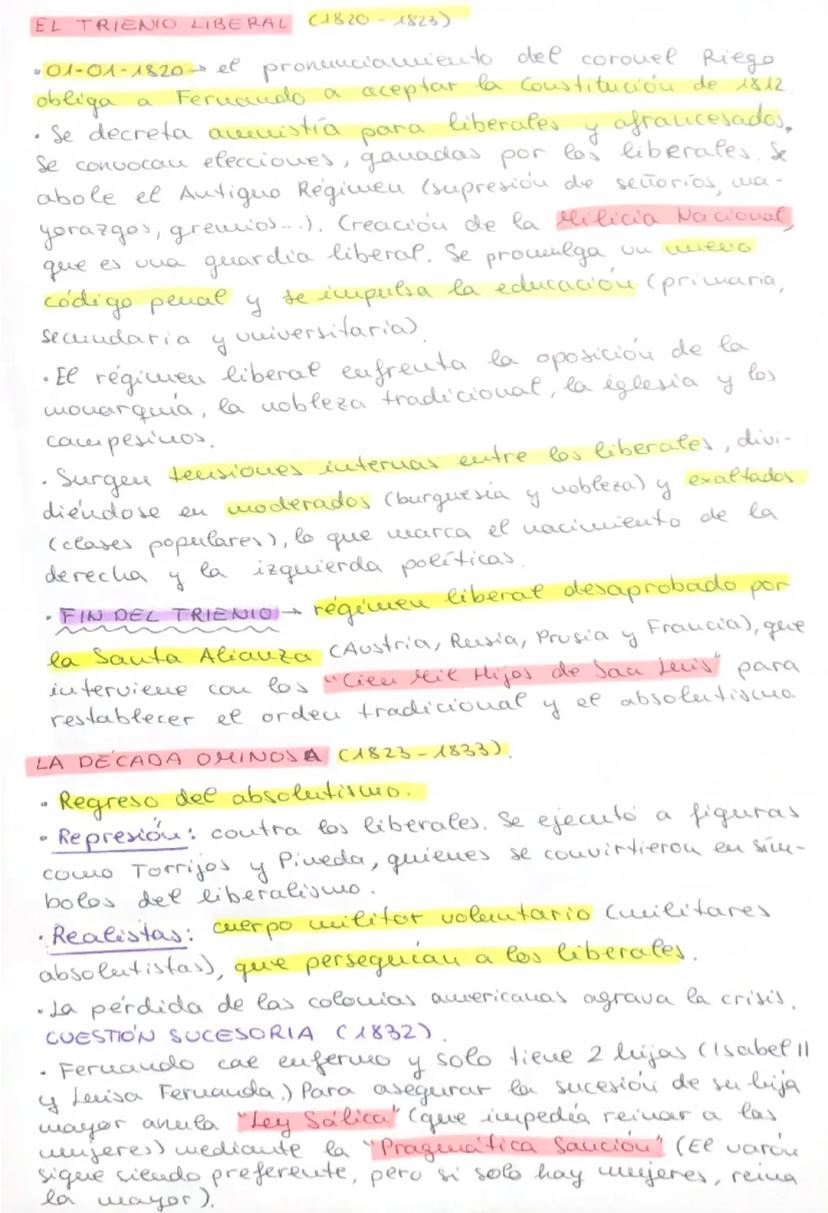 EL TRIENIO LIBERAL (1820 - 1823)
• 01-01-1820 → el pronunciamiento del coronel Riego
obliga a Fernando a aceptar la Constitución de 1812
• Se decreta amnistía para liberales y afrancesados.
Se convocan elecciones, ganadas por los liberales. Se
abole el Antiguo Régimen (supresión de señoríos, ma-
yorazgos, gremios...). Creación de la Milicia Nacional,
que es una guardia liberal. Se promulga un nuevo
código penal y se impulsa la educación (primaria,
secundaria y universitaria)
• El régimen liberal enfrenta la oposición de la
monarquía, la nobleza tradicional, la iglesia y los
campesinos.
• Surgen tensiones internas entre los liberales, divi-
diéndose en moderados (burguesía y nobleza) y exaltados
(clases populares), lo que marca el nacimiento de la
derecha y la izquierda políticas.
• FIN DEL TRIENIO → régimen liberal desaprobado por
la Santa Alianza (Austria, Rusia, Prusia y Francia), que
interviene con los "Cien Mil Hijos de San Luis" para
restablecer el orden tradicional y el absolutismo.
LA DÉCADA OMINOSA (1823 - 1833).
• Regreso del absolutismo.
• Represión: contra los liberales. Se ejecutó a figuras
como Torrijos y Pineda, quienes se convirtieron en sím-
bolos del liberalismo.
• Realistas: cuerpo militar voluntario (militares
absolutistas), que perseguían a los liberales.
• La pérdida de las colonias americanas agrava la crisis.
CUESTIÓN SUCESORIA (1832).
• Fernando cae enfermo y solo tiene 2 hijas (Isabel II
y Luisa Fernanda.) Para asegurar la sucesión de su hija
mayor anula "Ley Sálica" (que impedía reinar a las
mujeres) mediante la "Pragmática Sanción". (El varón
sigue siendo preferente, pero si solo hay mujeres, reina
la mayor).